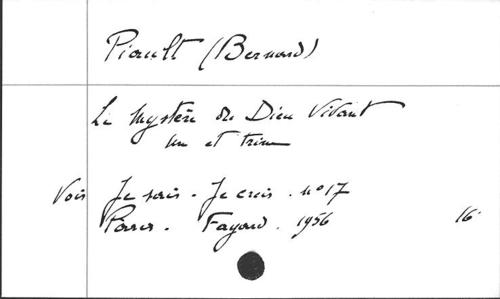 Piault (Bernard)
Le Mystère du Dieu Vivant
un et trine
Voir Je sais - Je crois . nº 17
Paris . Fayard . 1956 16º